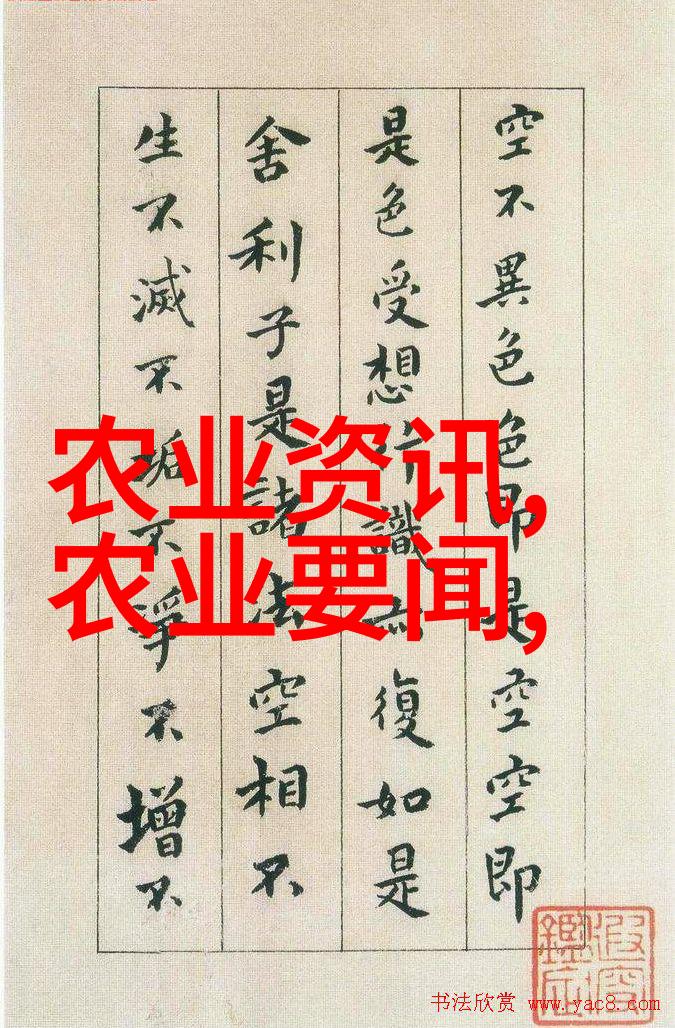 空不異色色即是空空即
是色受想行識亦復如是
舍利子是諸法空相不
生不滅不垢不淨不增不
农业资讯,
农业要闻,
书法欣赏 www.yac8.com